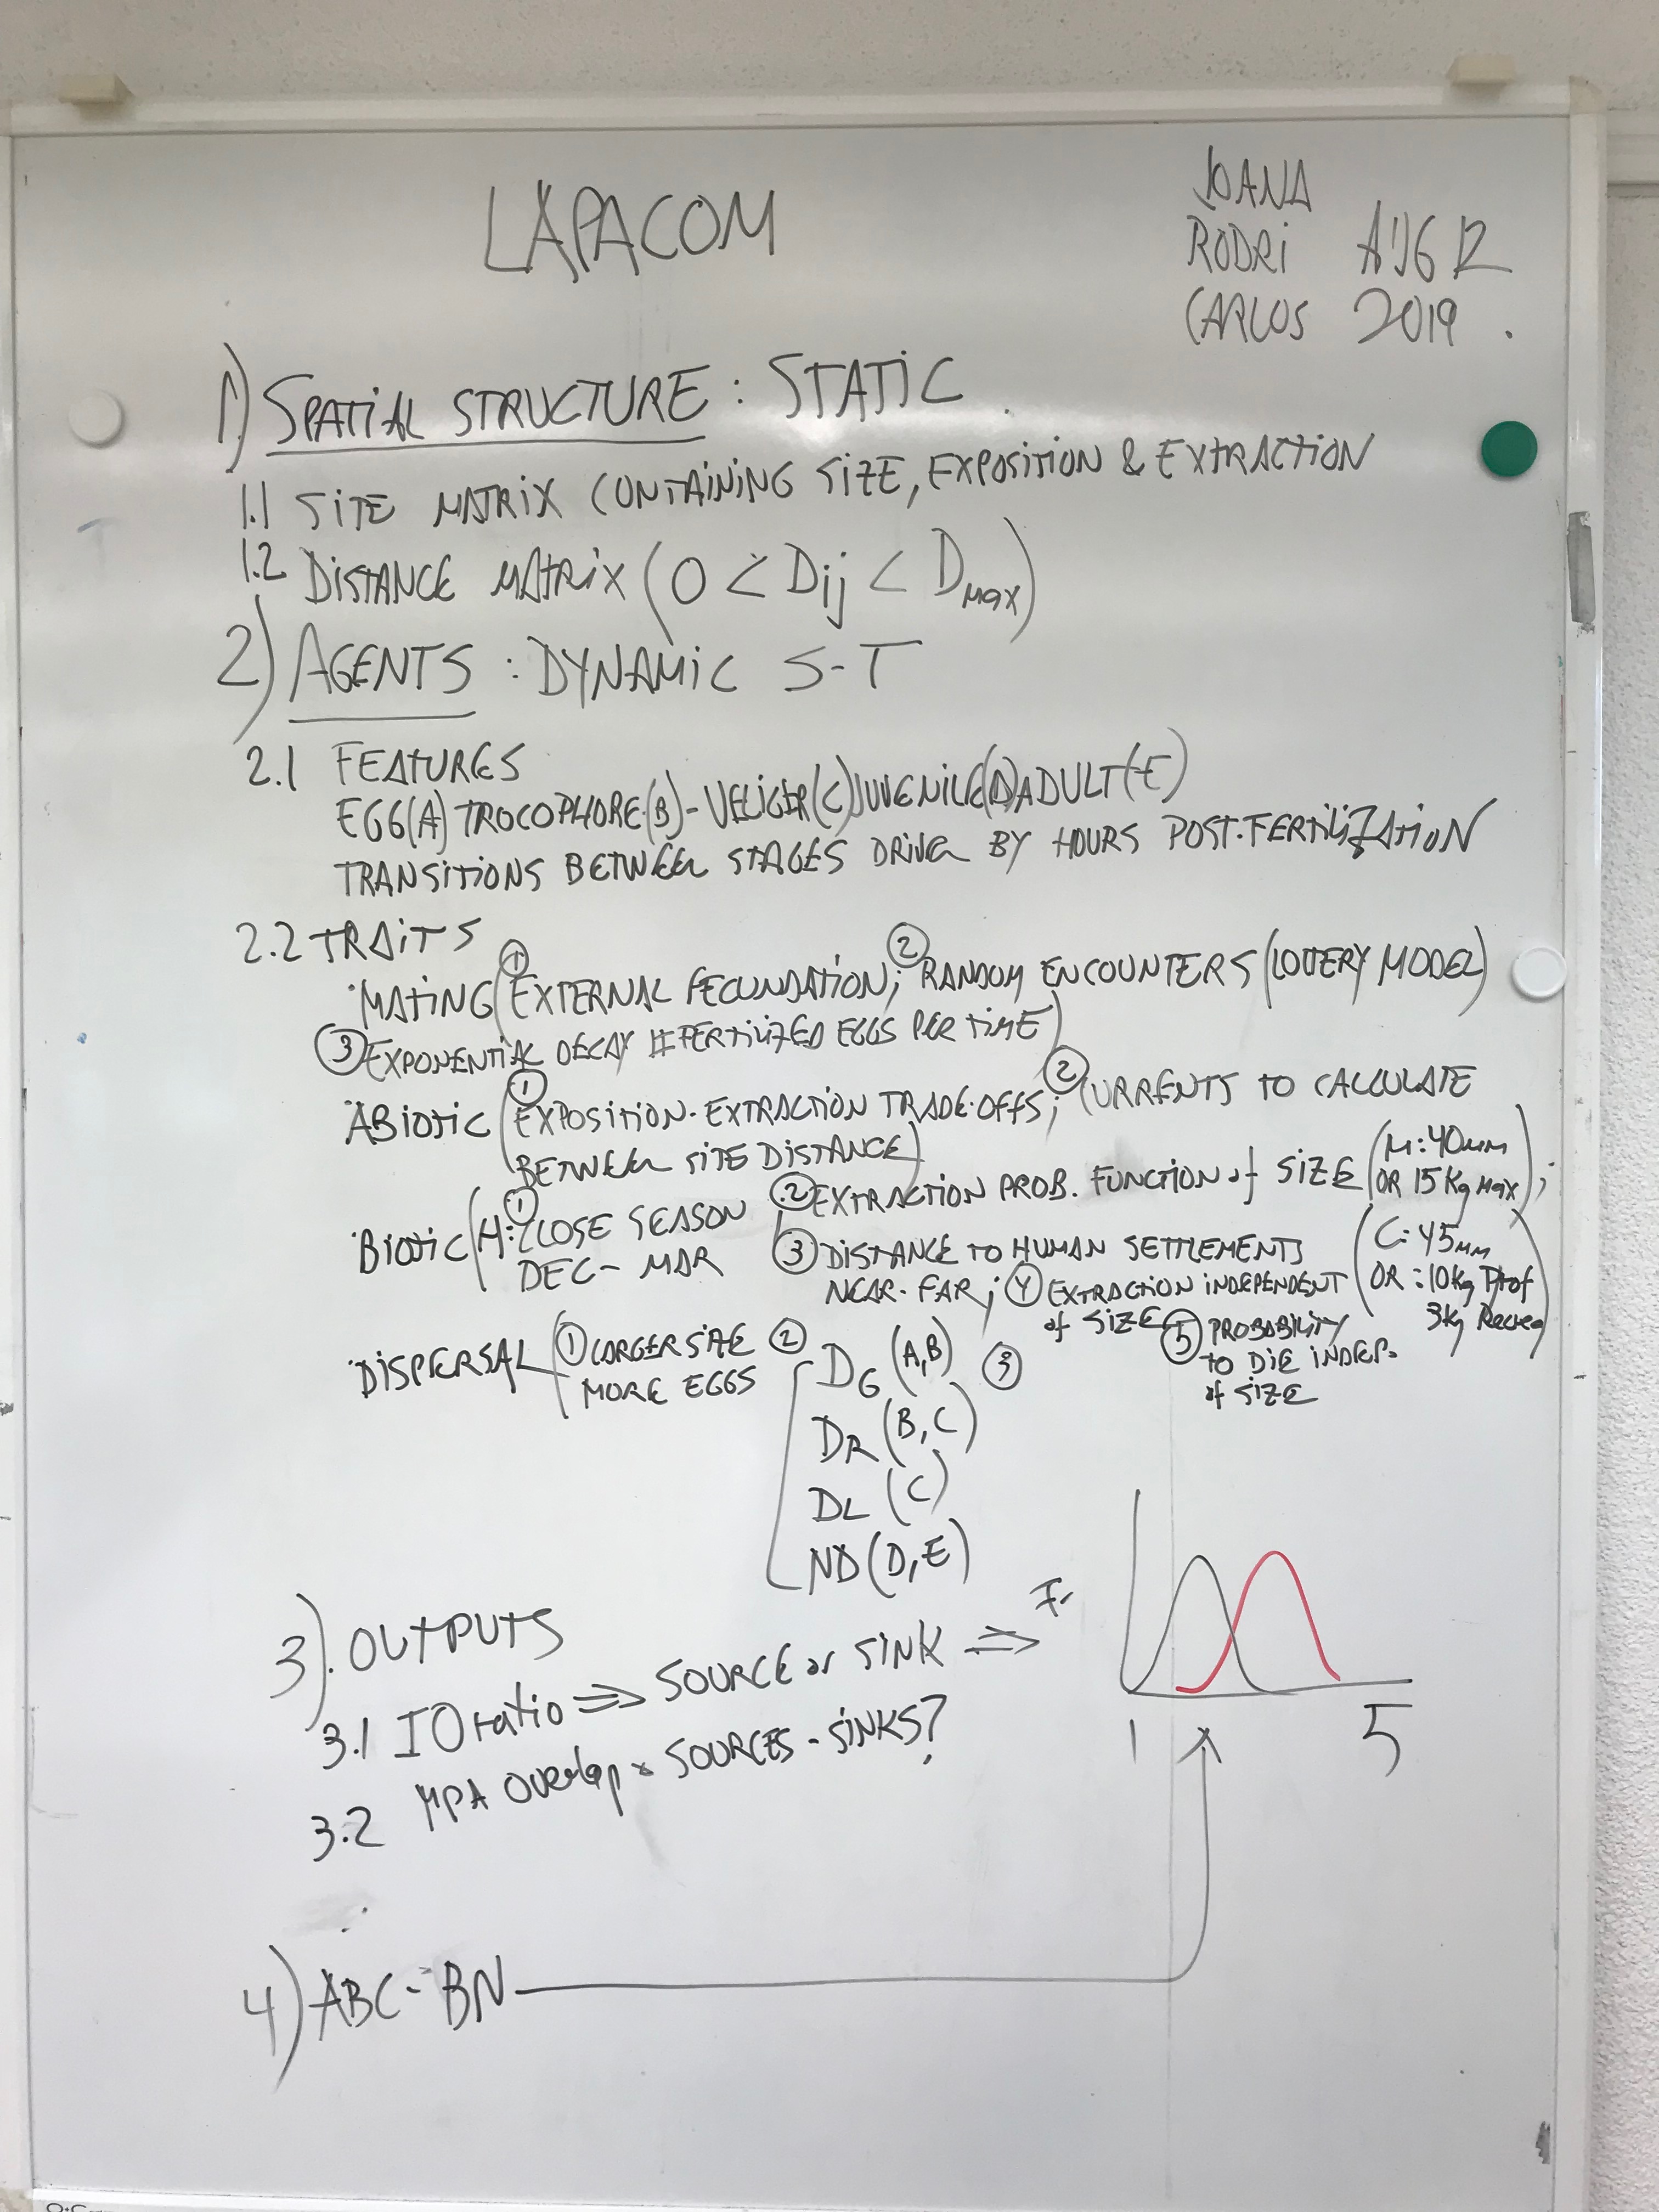 LAPACOM
JOANA
RODRI AUG 12
CARLOS 2019.
1) SPATIAL STRUCTURE: STATIC
1.1 SITE MATRIX CONTAINING SIZE, EXPOSITION & EXTRACTION
1.2 DISTANCE MATRIX (0 < Dij < DMax)
2) AGENTS: DYNAMIC S-T
2.1 FEATURES
EGG(A) TROCOPHORE(B)-VELIGER(C)JUVENILE(D)ADULT(E)
TRANSITIONS BETWEEN STAGES DRIVEN BY HOURS POST-FERTILIZATION
2.2 TRAITS
·MATING (① EXTERNAL FECUNDATION; ② RANDOM ENCOUNTERS (LOTTERY MODEL)
③ EXPONENTIAL DECAY #FERTILIZED EGGS PER TIME)
ABIOTIC (① EXPOSITION-EXTRACTION TRADE-OFFS; ② CURRENTS TO CALCULATE
BETWEEN SITE DISTANCE)
·BIOTIC (H: ① CLOSE SEASON ② EXTRACTION PROB. FUNCTION of SIZE (M: 40mm
OR 15Kg Max);
DEC-MAR ③ DISTANCE TO HUMAN SETTLEMENTS (C: 45mm
NEAR-FAR; ④ EXTRACTION INDEPENDENT OR: 10Kg Prof
of SIZE ⑤ PROBABILITY 3Kg Recrea)
TO DIE INDEP.
of SIZE
·DISPERSAL (① LARGER SIZE ② DG (A,B) ③
MORE EGGS
DR (B,C)
DL (C)
ND (D,E)
3). OUTPUTS
3.1 IO ratio ⇒ SOURCE or SINK ⇒
3.2 MPA Overlap SOURCES-SINKS?
1 5
4) ABC-BN